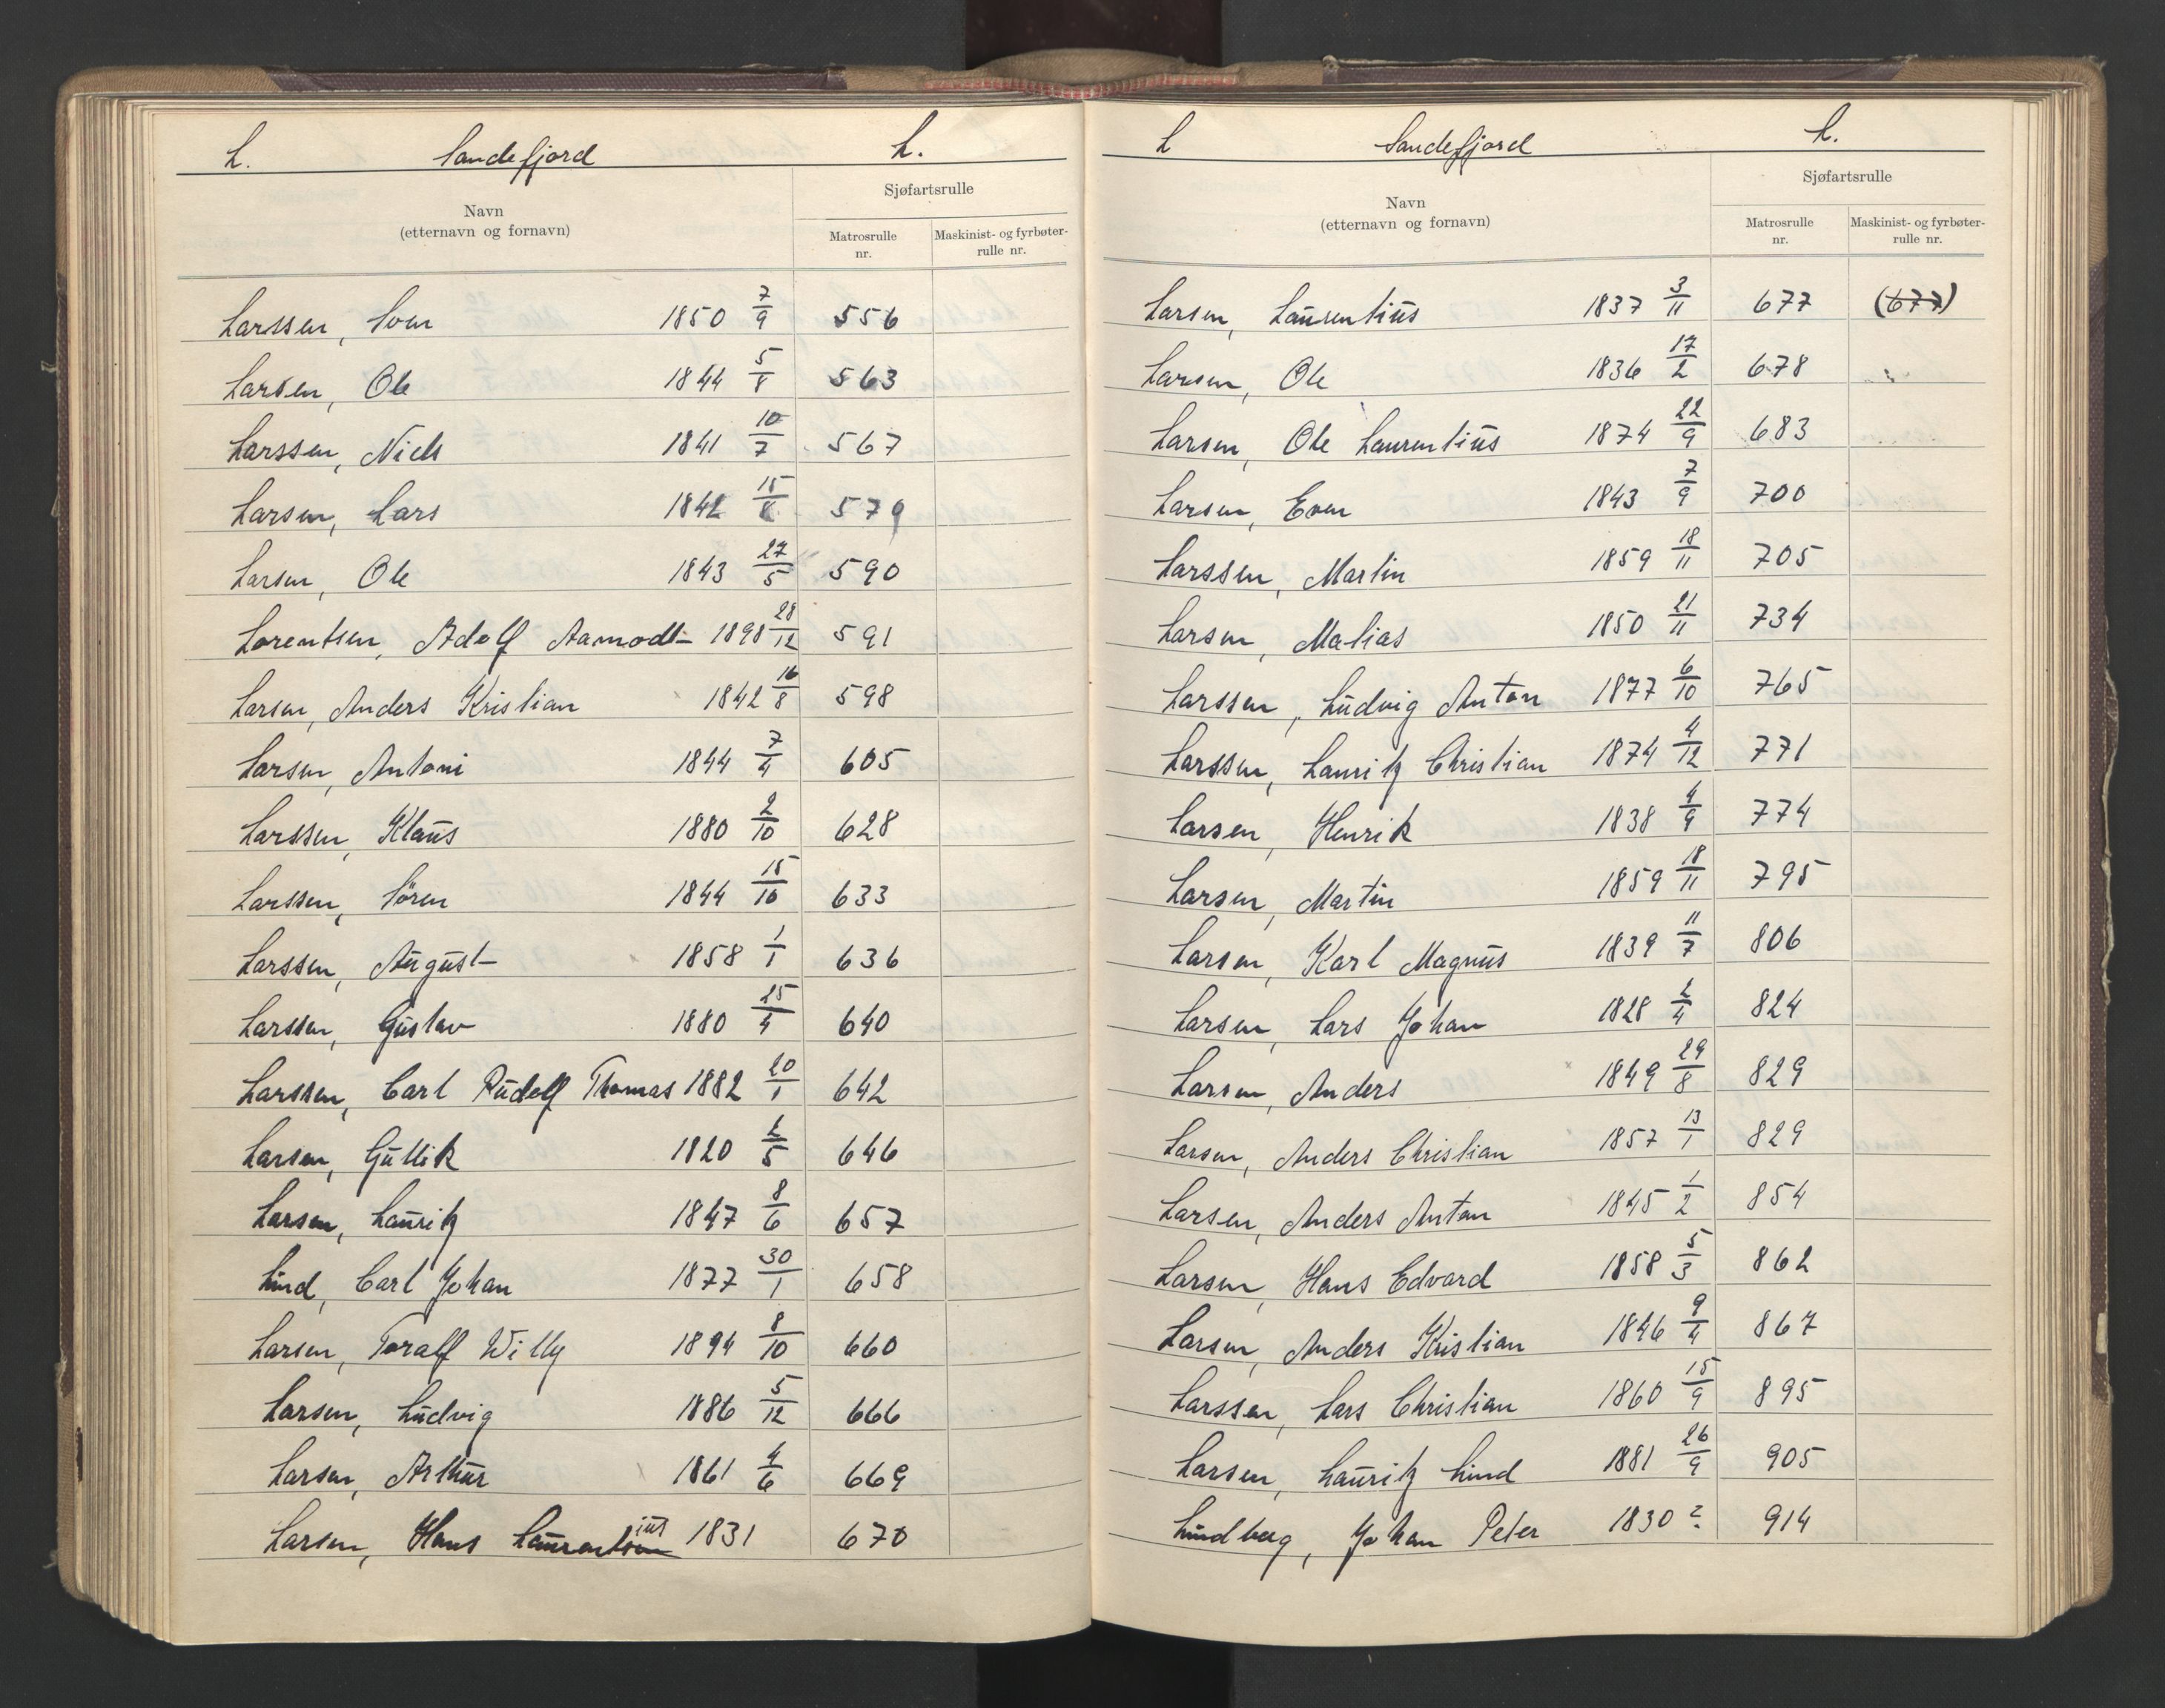 L. Sandefjord L.
Navn
(etternavn og fornavn)
Sjøfartsrulle
Matrosrulle
nr.
Maskinist- og fyrbøter-
rulle nr.
Larssen, Sven 1850 7/9 556
Larsen, Ole 1844 5/8 563
Larssen, Niels 1841 10/7 567
Larsen, Lars 1842 15/8 579
Larsen, Ole 1843 27/5 590
Lorentsen, Adolf Aamodt 1898 28/12 591
Larsen, Anders Kristian 1842 16/8 598
Larsen, Antoni 1844 7/4 605
Larssen, Klaus 1880 2/10 628
Larssen, Sören 1844 15/10 633
Larssen, August 1858 1/1 636
Larssen, Gustav 1880 25/4 640
Larssen, Carl Rudolf Thomas 1882 20/1 642
Larsen, Gullik 1820 2/5 646
Larsen, Lauritz 1847 8/6 657
Lind, Carl Johan 1877 30/1 658
Larsen, Toralf Willy 1894 8/10 660
Larsen, Ludvig 1886 5/12 666
Larsen, Arthur 1861 4/6 669
Larsen, Hans Laurentius 1831 670
L Sandefjord L.
Navn
(etternavn og fornavn)
Sjøfartsrulle
Matrosrulle
nr.
Maskinist- og fyrbøter-
rulle nr.
Larsen, Laurentius 1837 3/11 677 (677)
Larsen, Ole 1836 17/2 678
Larsen, Ole Laurentius 1874 22/9 683
Larsen, Even 1843 7/9 700
Larssen, Martin 1859 18/11 705
Larsen, Matias 1850 21/11 734
Larssen, Ludvig Anton 1877 6/10 765
Larssen, Lauritz Christian 1874 4/12 771
Larsen, Henrik 1838 4/9 774
Larsen, Martin 1859 18/11 795
Larsen, Karl Magnus 1839 11/7 806
Larsen, Lars Johan 1828 2/4 824
Larsen, Anders 1849 29/8 829
Larsen, Anders Christian 1857 13/1 829
Larsen, Anders Anton 1845 1/2 854
Larsen, Hans Edvard 1858 5/3 862
Larsen, Anders Kristian 1846 9/4 867
Larssen, Lars Christian 1860 15/9 895
Larsen, Lauritz Lind 1881 26/9 905
Lindberg, Johan Peter 1830 ? 914